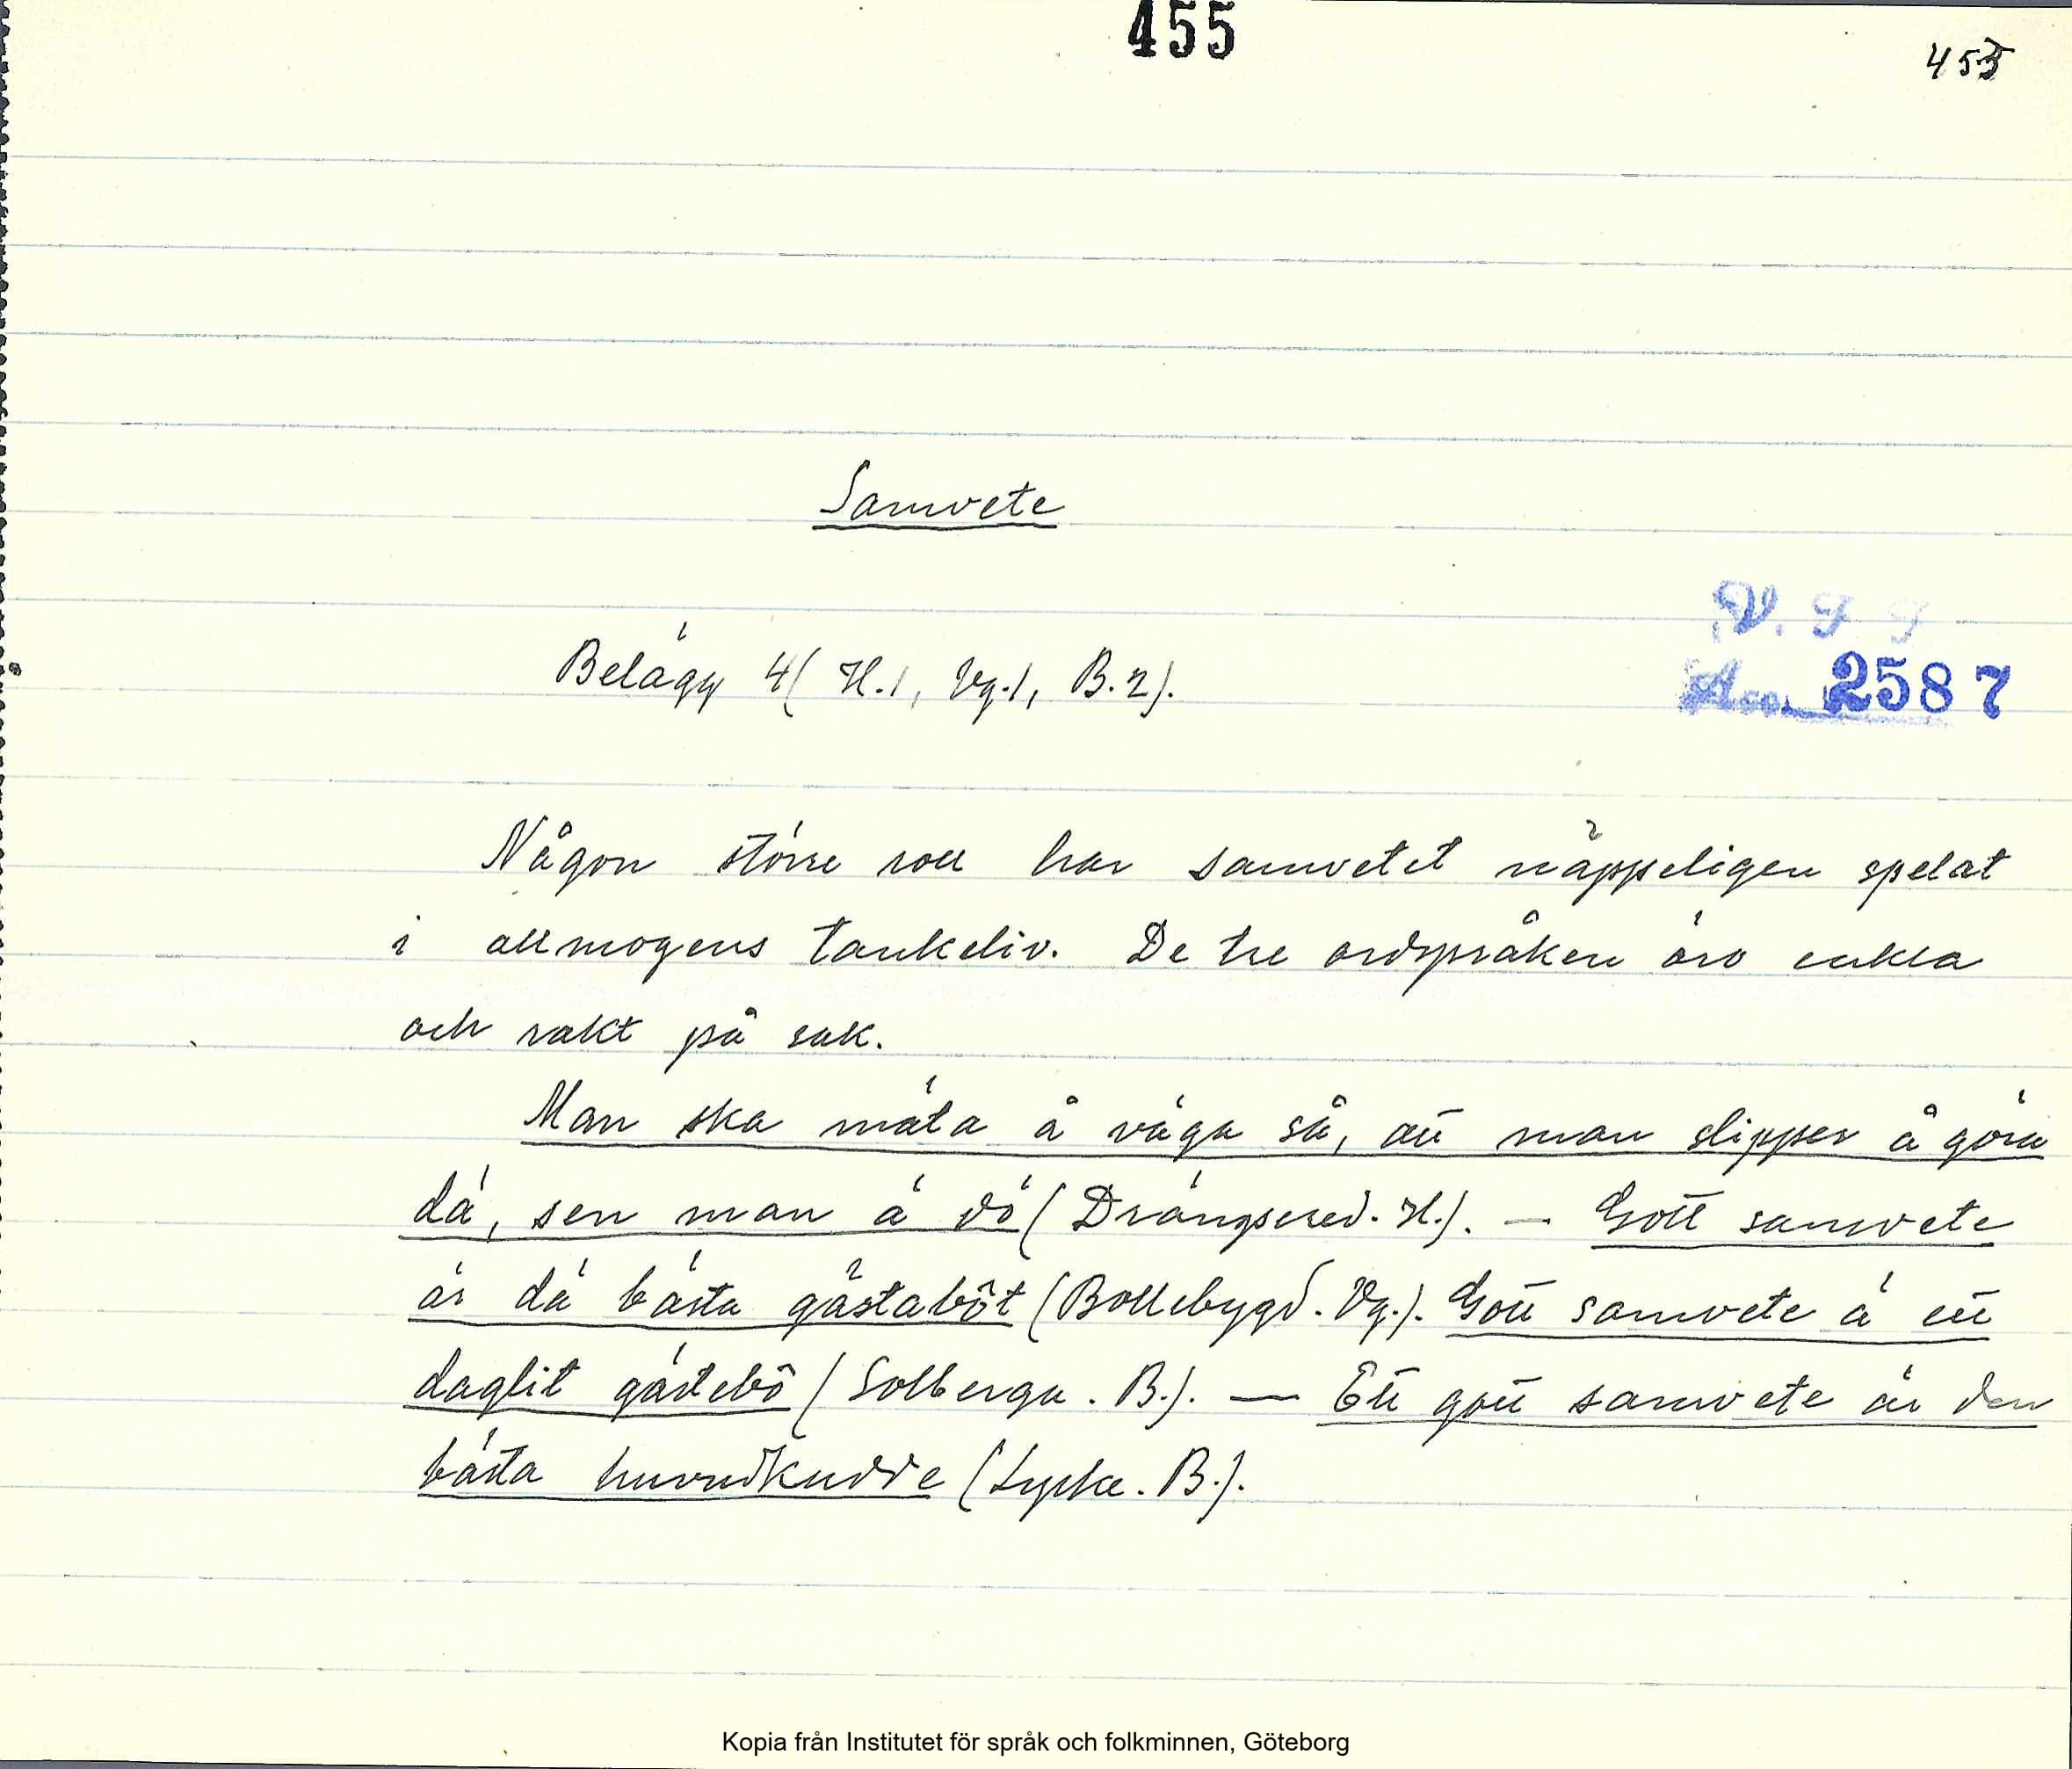 455
455
Samvete
V. F F
Belägg 4 (H.1, Vg.1, B.2).
Acc. 2587
Någon större roll har samvetet näppeligen spelat
i allmogens tankeliv. De tre ordspråken äro enkla
och rakt på sak.
Man ska mäta å väga så, att man slipper å göra
dä, sen man ä dö (Drängsered. H.). — Gott samvete
är dä bästa gästaböt (Bollebygd. Vg.). Gott samvete ä ett
daglit gästebö (Solberga. B.). — Ett gott samvete är den
bästa huvudkudde (Lycke. B.).
Kopia från Institutet för språk och folkminnen, Göteborg